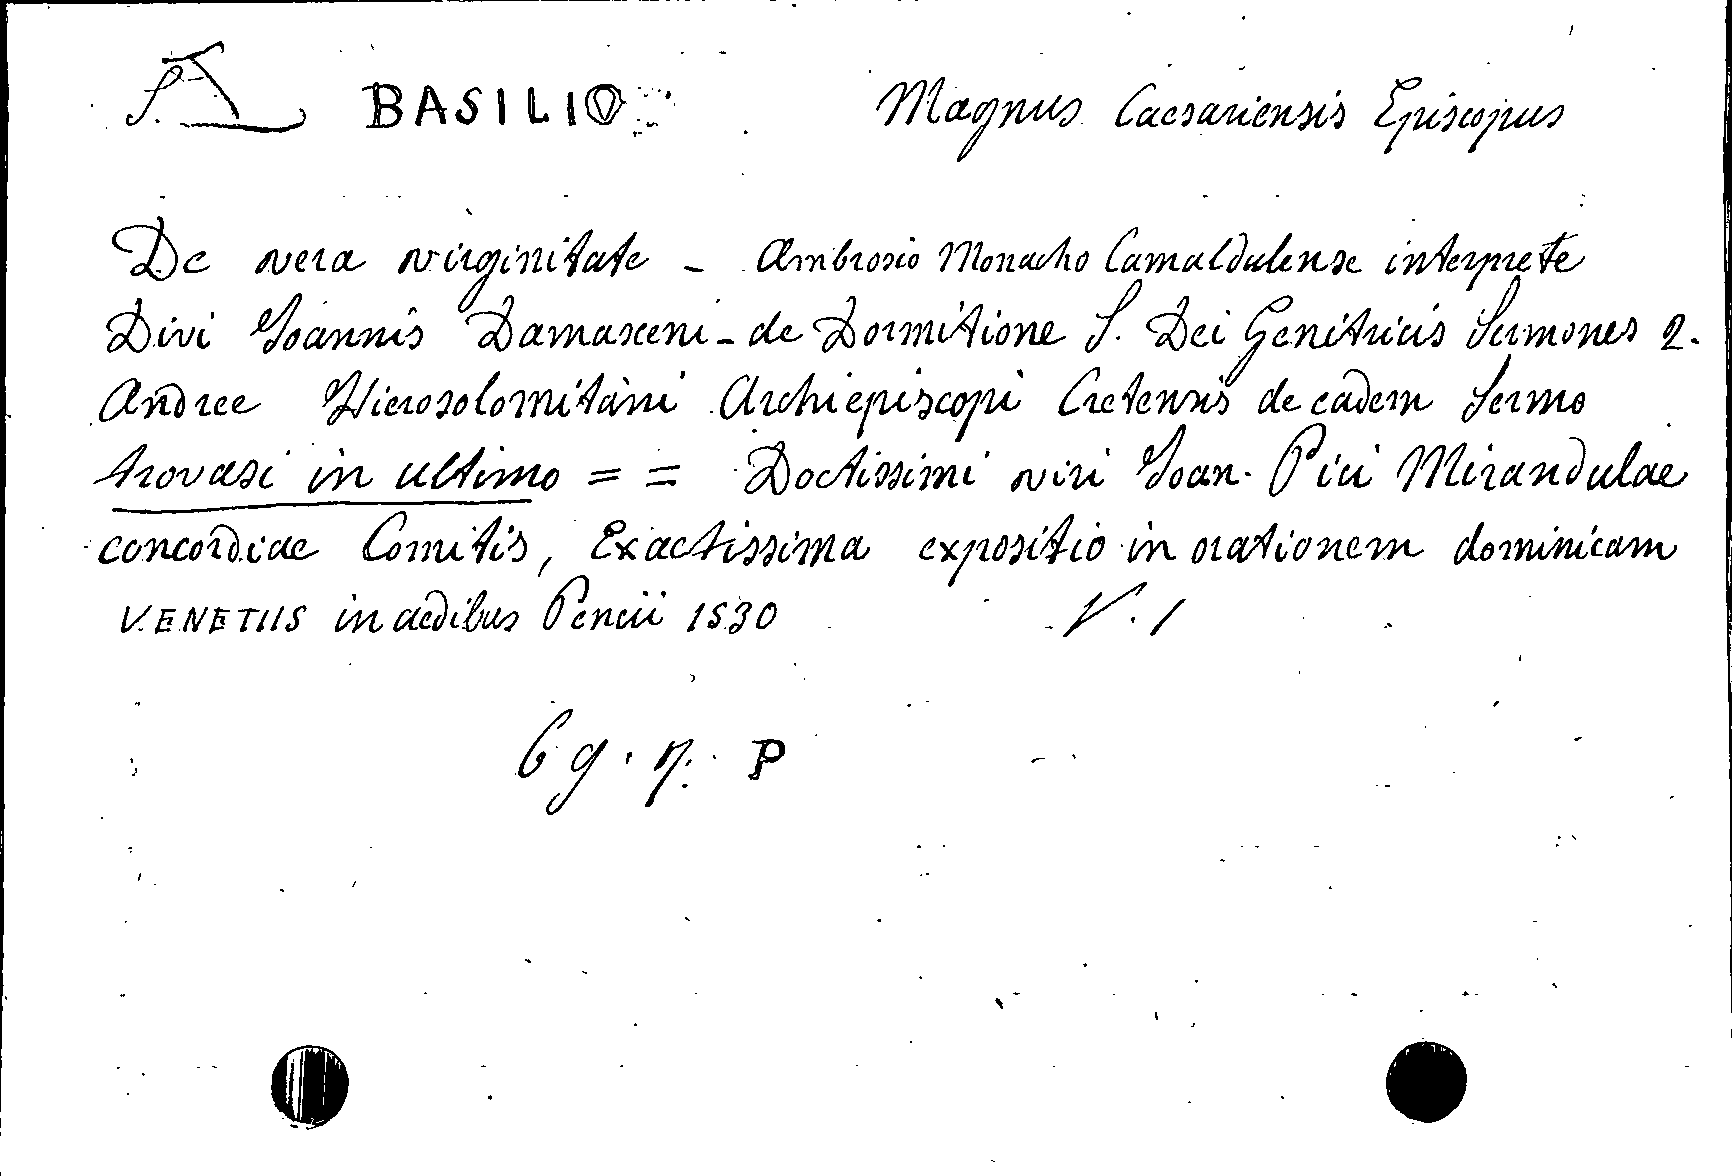 S. BASILIO Magnus Caesariensis Episcopus
De vera virginitate - Ambrosio Monacho Camaldulense interprete
Divi Ioannis Damasceni - de Dormitione S. Dei Genitricis Sermones 2.
Andree Hierosolomitani Archiepiscopi Cretensis de eadem Sermo
trovasi in ultimo = = Doctissimi viri Ioan. Pici Mirandulae
concordiae Comitis, Exactissima expositio in orationem dominicam
VENETIIS in aedibus Pencii 1530 V. 1
6 g. η. P